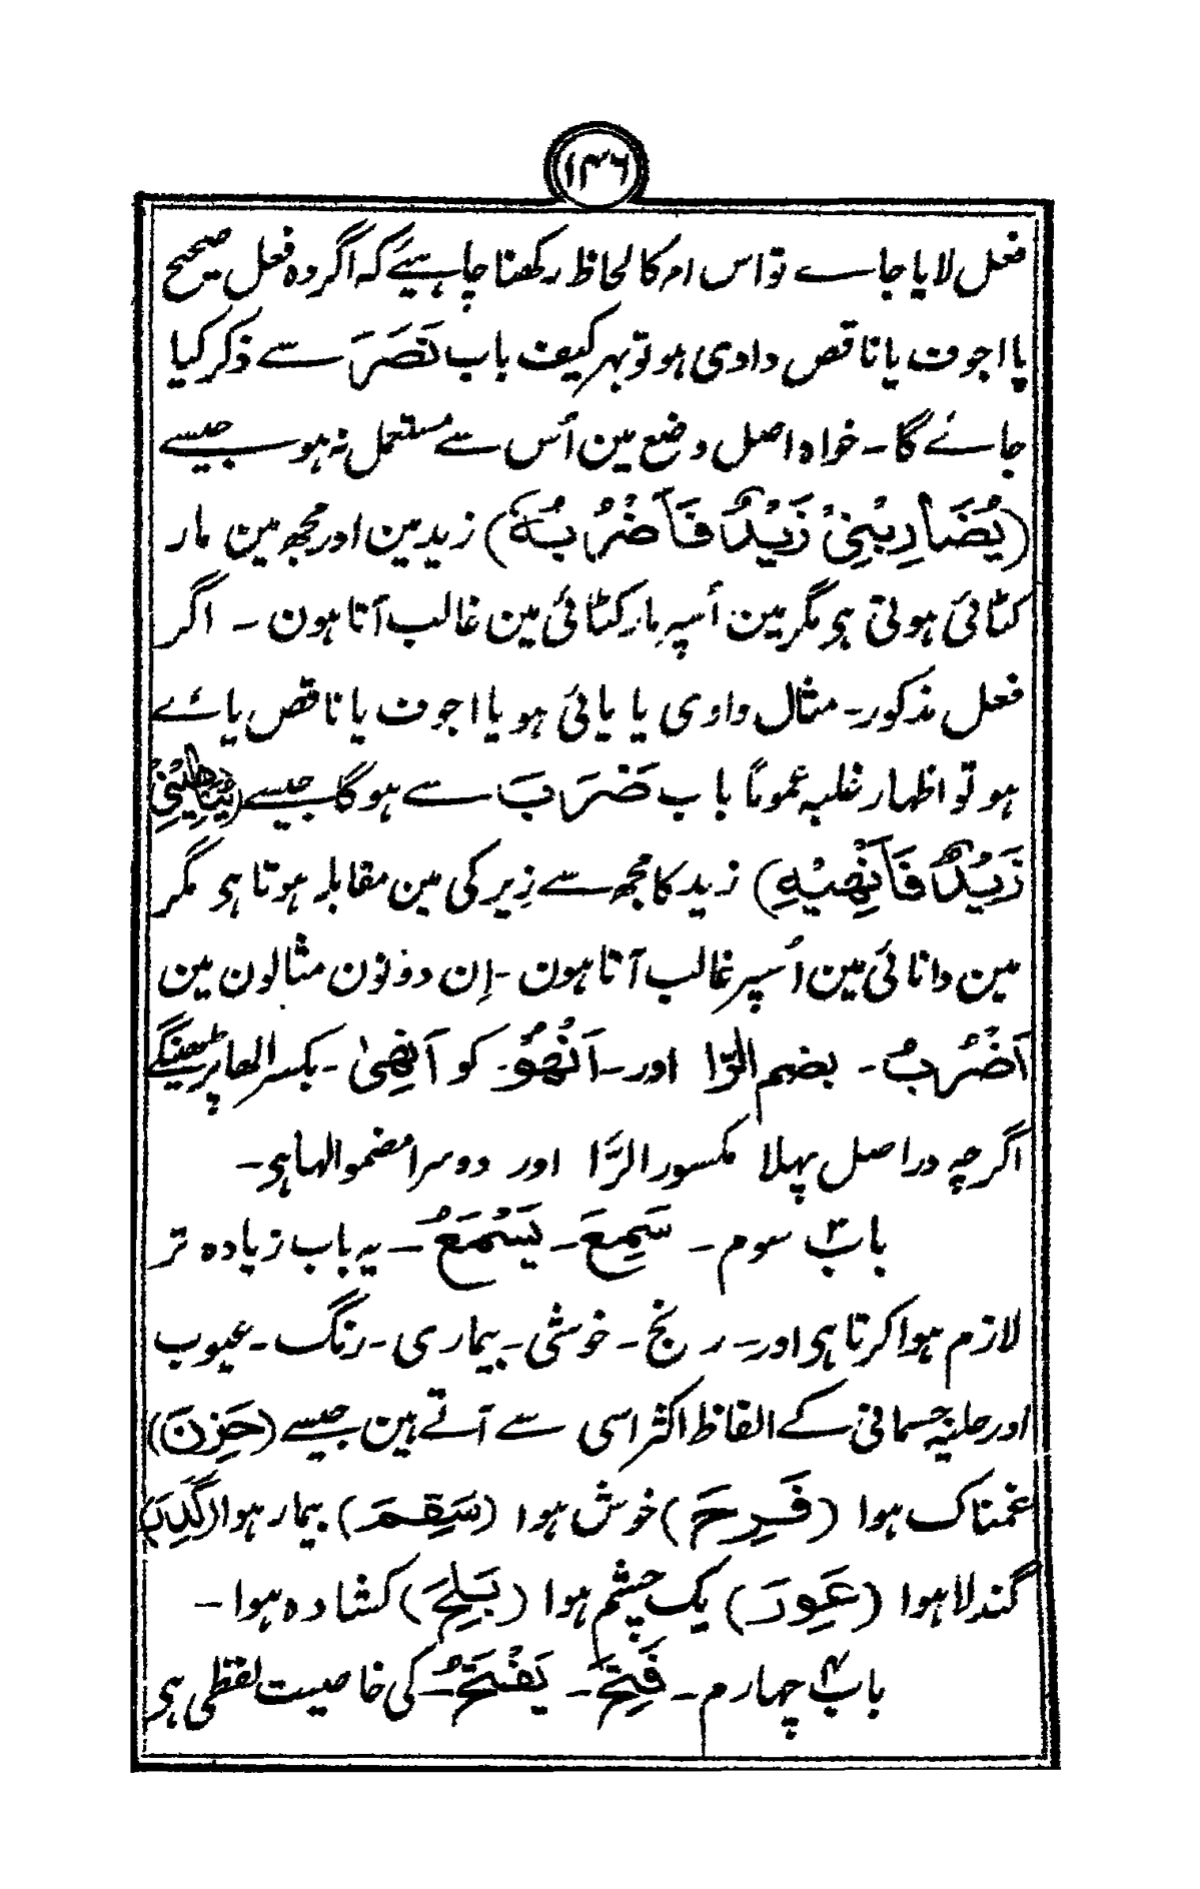 ۱۴۶
فعل لایا جاے تو اس امر کا لحاظ رکھنا چاہیے کہ اگر وہ فعل صحیح
یا اجوف یا ناقص واوی ہو تو بہر کیف باب نَصَرَ سے ذکر کیا
جائے گا۔ خواہ اصل وضع مین اُس سے مستعمل نہ ہو جیسے
(یُضَارِبُنِیْ زَیْدٌ فَاَضْرُبُهٗ) زید مین اور مجھ مین مار
کٹائی ہوتی ہی مگر مین اُسپہ مار کٹائی مین غالب آتا ہون ۔ اگر
فعل مذکور۔ مثال واوی یا یائی ہو یا اجوف یا ناقص یائے
ہو تو اظہار غلبہ عموماً باب ضَرَبَ سے ہوگا جیسے
زَیْدٌ فَاَنْهِیْهِ) زید کا مجھ سے زیرکی مین مقابلہ ہوتا ہی مگر
مین دانائی مین اُسپر غالب آتا ہون ۔ اِن دونون مثالون مین
اَضْرُبُ ۔ بضم الرّا اور۔ اَنْهُوْ۔ کو اَنْهِیْ ۔ بکسر الھا پڑھینگے
اگرچہ دراصل پہلا مکسور الرَّا اور دوسرا مضمو الہا ہی۔
باب۳ سوم۔ سَمِعَ۔ یَسْمَعُ ۔ یہ باب زیادہ تر
لازم ہوا کرتا ہی اور۔ رنج ۔ خوشی۔ بیماری۔ رنگ ۔ عیوب
اور حلیہ جسمانی کے الفاظ اکثر اسی سے آتے ہین جیسے (حَزِنَ)
غمناک ہوا (فَرِحَ) خوش ہوا (سَقِمَ) بیمار ہوا (كَدِرَ)
گندلا ہوا (عَوِرَ) یک چشم ہوا (بَلِجَ) کشادہ ہوا ۔
باب۴ چہارم۔ فَتِحَ ۔ یَفْتَحُ ۔ کی خاصیت لفظی ہی